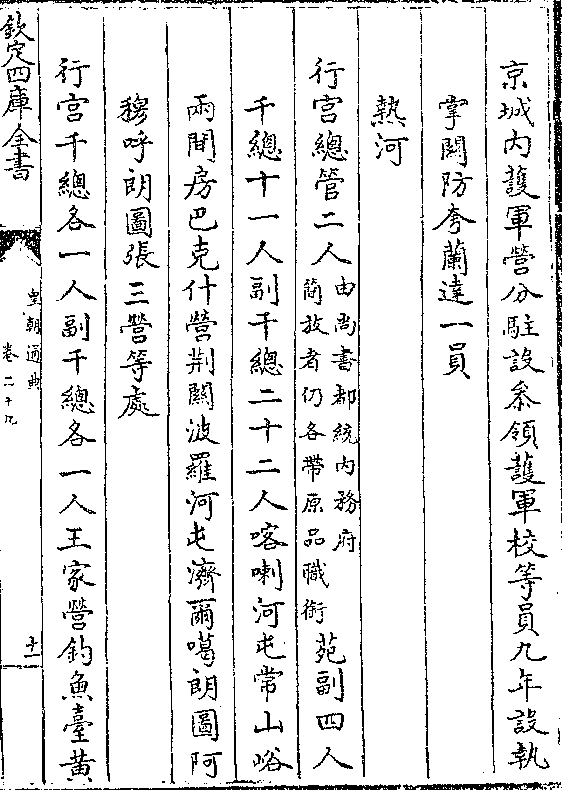 京城内護軍營分駐設叅領護軍校等員九年設執
掌關防夸蘭達一員
熱河
行宫總管二人由尚書都統内務府簡放者仍各帶原品職銜苑副四人
千總十一人副千總二十二人喀喇河屯常山峪
兩間房巴克什營荆關波羅河屯濟爾噶朗圖阿
穆呼朗圖張三營等處
行宫千總各一人副千總各一人王家營釣魚臺黄
欽定四庫全書
皇朝通典
卷二十九
十一